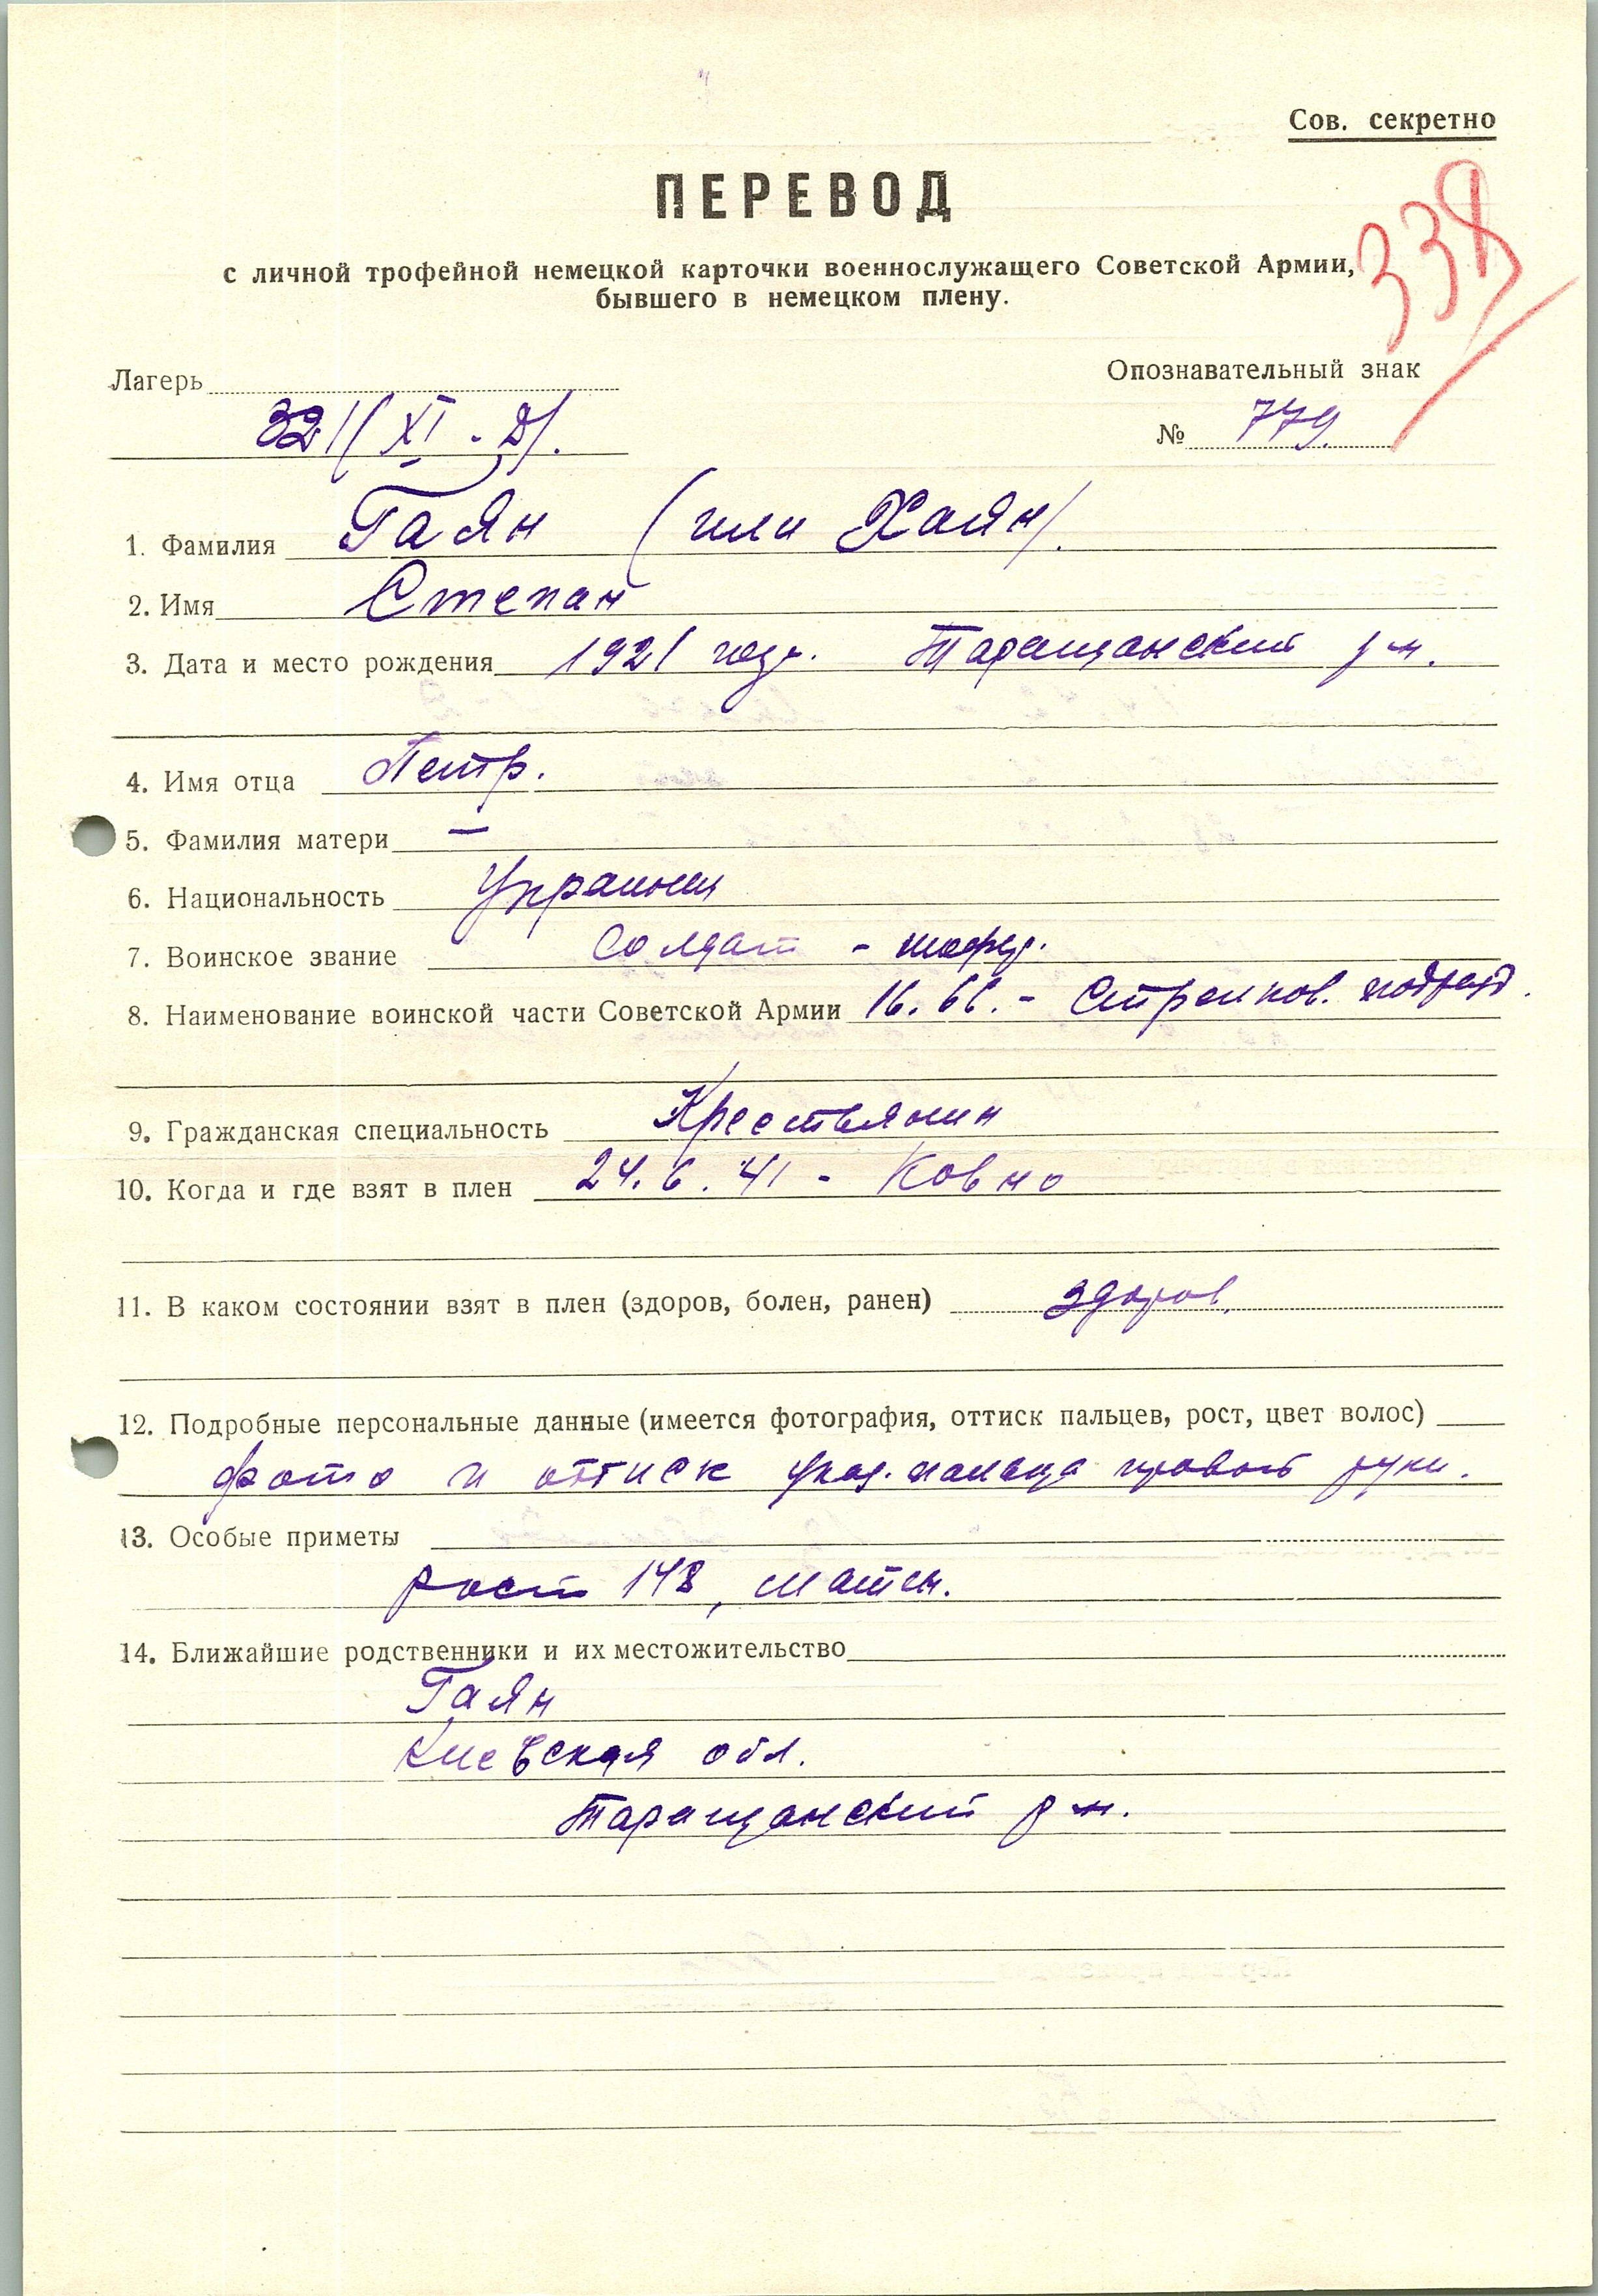 Сов. секретно
ПЕРЕВОД
с личной трофейной немецкой карточки военнослужащего Советской Армии,
бывшего в немецком плену.
338
Лагерь
Опознавательный знак
321/(XI-D/.
№ 779.
1. Фамилия Гаян (или Хаян/.
2. Имя Степан
3. Дата и место рождения 1921 года. Таращанский р-н.
4. Имя отца Петр.
5. Фамилия матери —
6. Национальность
7. Воинское звание Солдат - шофер.
8. Наименование воинской части Советской Армии 16. - Стрелков.
9. Гражданская специальность Крестьянин
10. Когда и где взят в плен 24.6.41 - Ковно
11. В каком состоянии взят в плен (здоров, болен, ранен) здоров.
12. Подробные персональные данные (имеется фотография, оттиск пальцев, рост, цвет волос)
фото и оттиск указ. пальца правой руки.
13. Особые приметы
рост 148,
14. Ближайшие родственники и их местожительство
Гаян
Киевская обл.
Таращанский р-н.